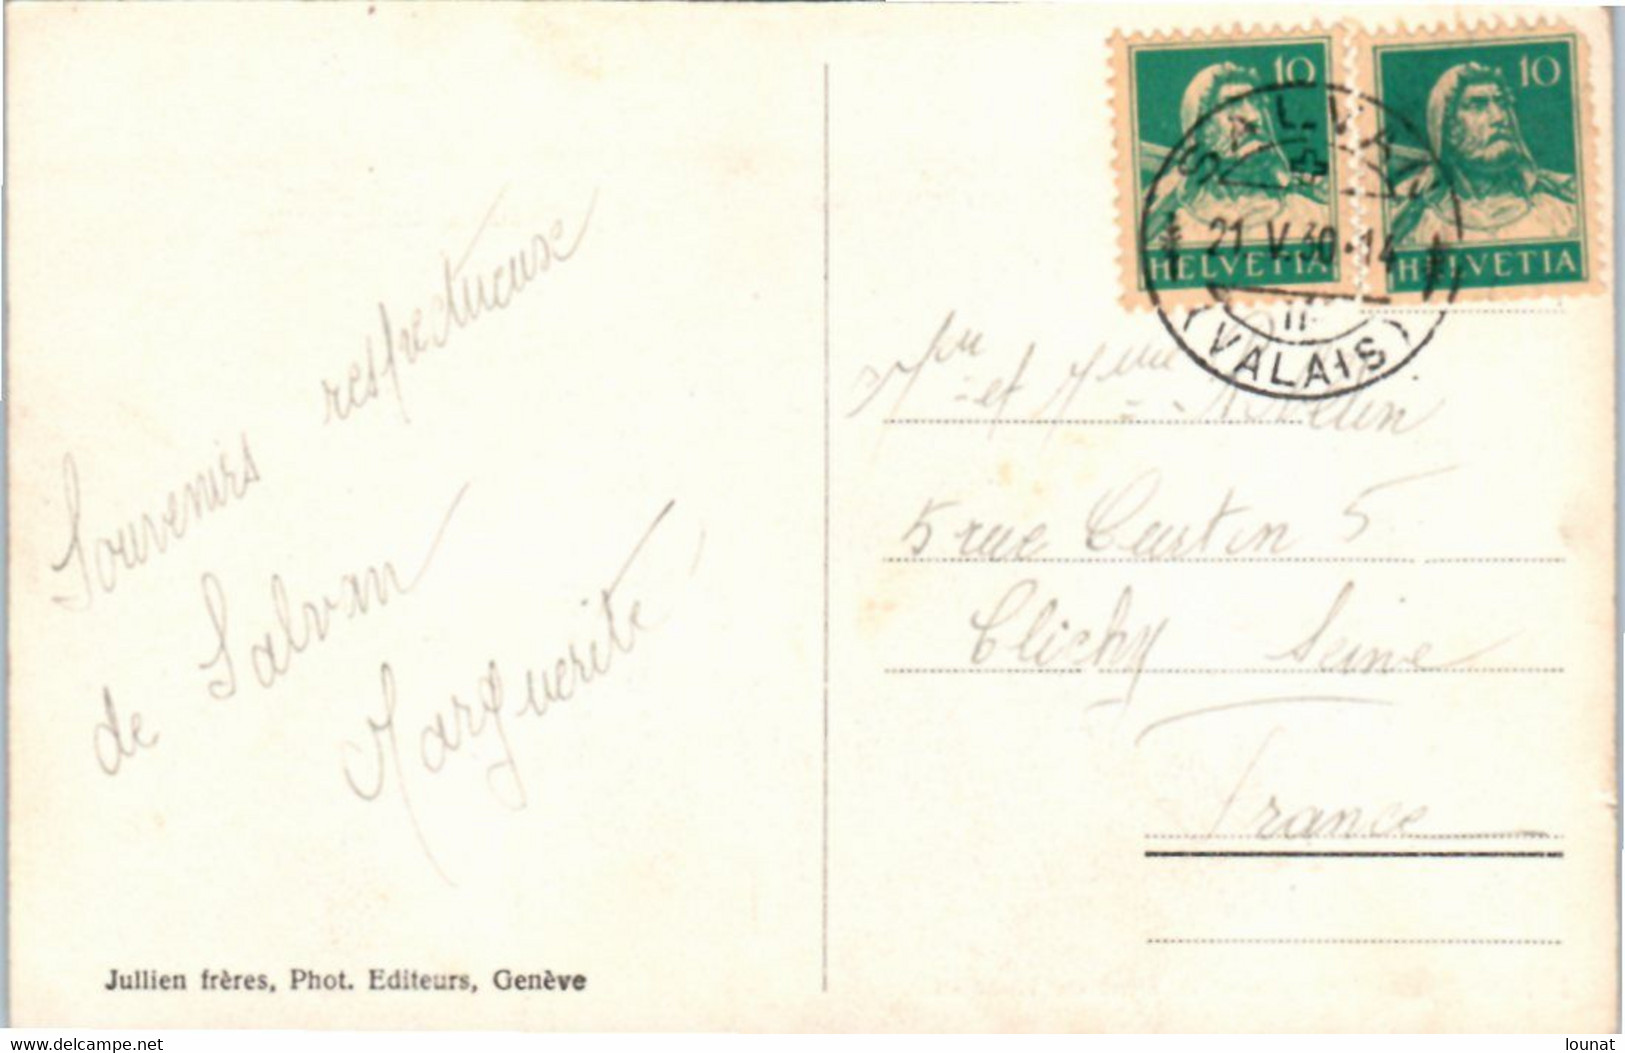 Souvenirs respectueux
de Salvan
Marguerite
Jullien frères, Phot. Editeurs, Genève
10
HELVETIA
10
HELVETIA
SALVAN
21.V.30-14
(VALAIS)
et Mme
5 rue Curtin 5
Clichy Seine
France
www.delcampe.net
lounat